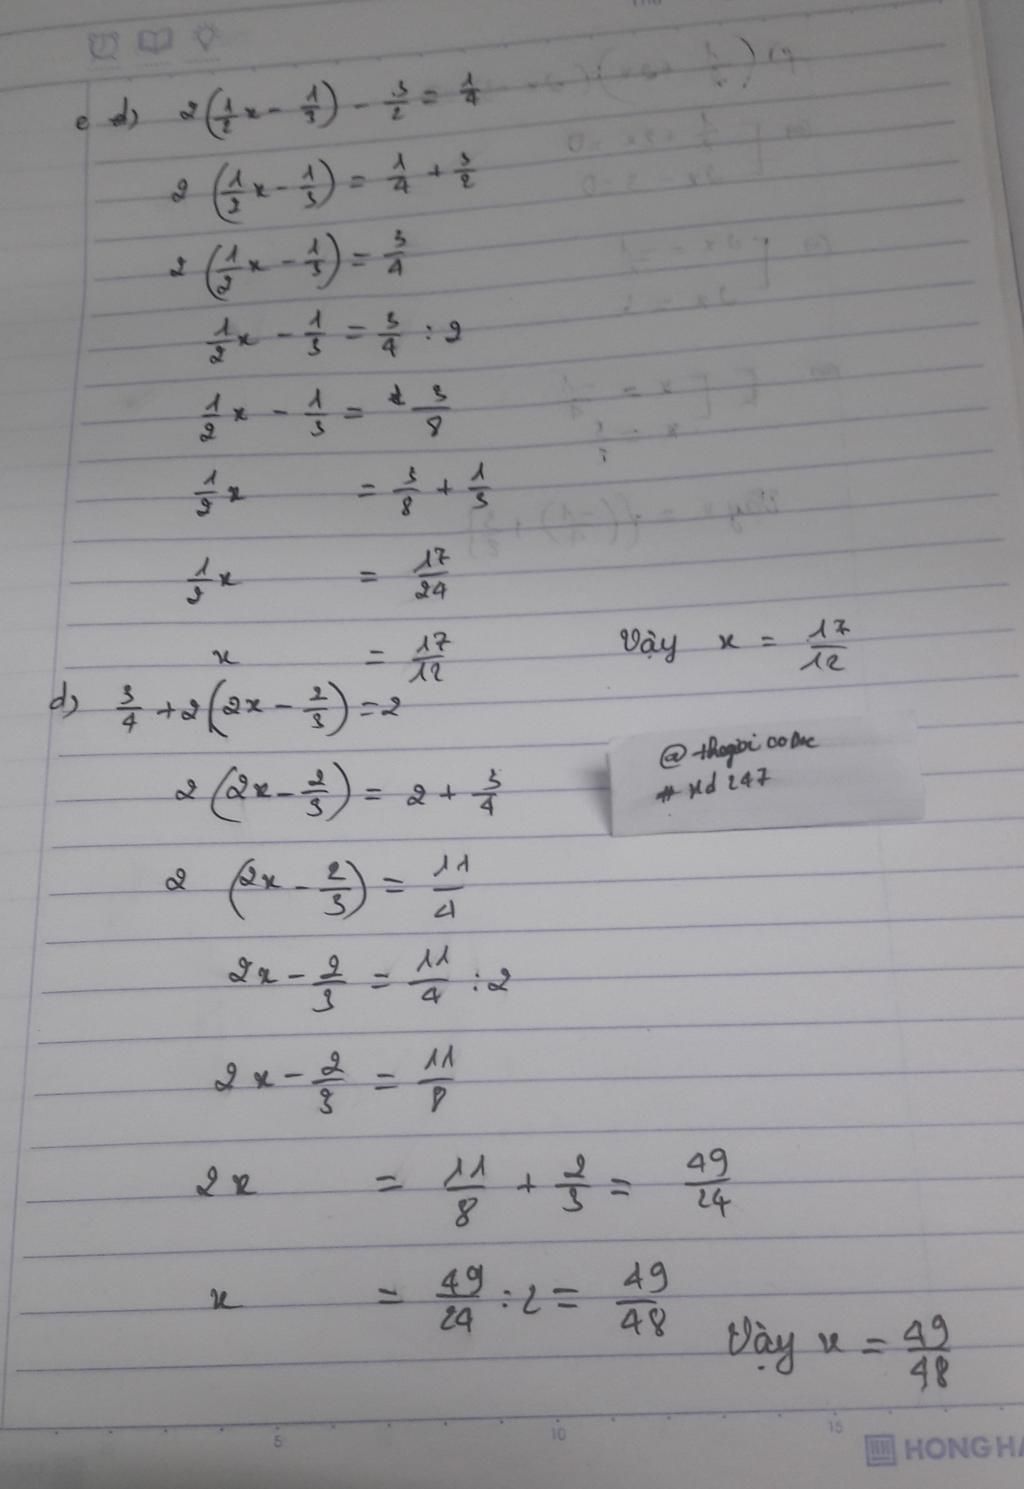 c d) 2(1/2x - 1/3) - 3/2 = 1/4
2 (1/2x - 1/3) = 1/4 + 3/2
2 (1/2x - 1/3) = 3/4
1/2x - 1/3 = 3/4 : 2
1/2x - 1/3 = 3/8
1/2x = 3/8 + 1/3
1/2x = 17/24
x = 17/12 Vậy x = 17/12
d) 3/4 + 2(2x - 2/3) = 2
2(2x - 2/3) = 2 + 3/4
2 (2x - 2/3) = 11/4
2x - 2/3 = 11/4 : 2
2x - 2/3 = 11/8
2x = 11/8 + 2/3 = 49/24
x = 49/24 : 2 = 49/48
Vậy x = 49/48
# xd 247
5 10 15
HONG HA